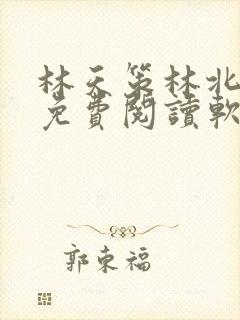 林天策林北
免費閱讀軟
郭東福